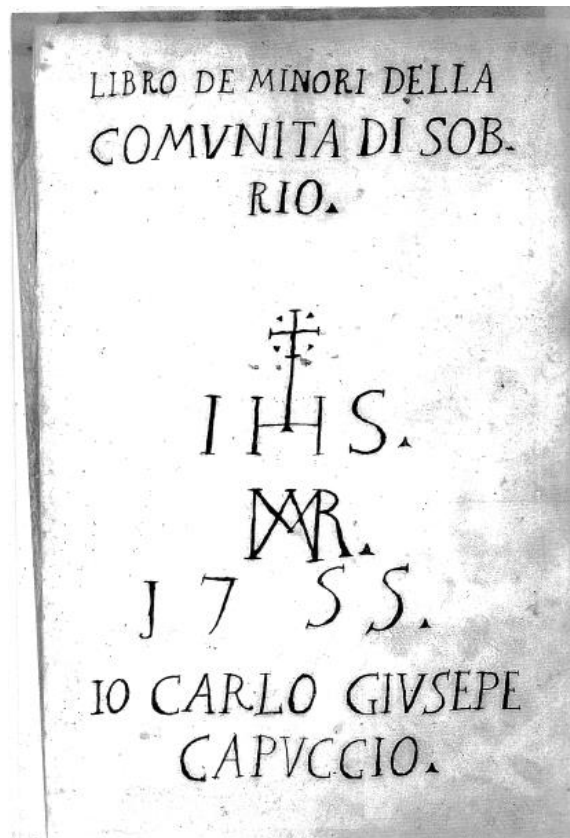 LIBRO DE MINORI DELLA
COMVNITA DI SOB-
RIO.
IHS.
MAR.
1755.
IO CARLO GIVSEPE
CAPVCCIO.